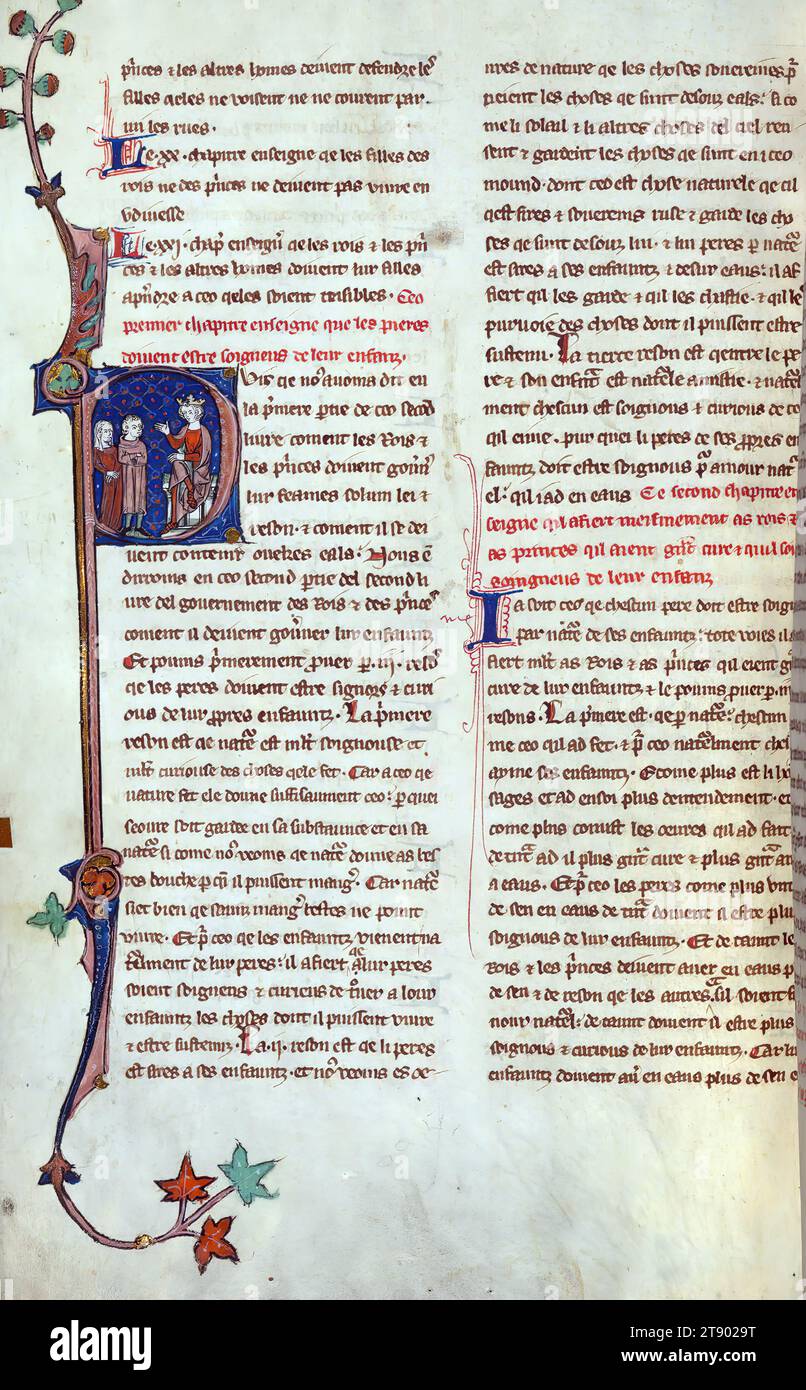 p̃nces ⁊ les altres homes deiuent defendre le˜
filles qe les ne voisent ne ne courent par
mi les rues.
Le .xx. chapitre enseigne qe les filles des
rois ne des p̃nces ne deiuent pas viure en
vdiuesse
Le .xxi. chap̃ enseigñ qe les rois ⁊ les p̃n
ces ⁊ les altres homes doiuent lur filles
ap̃ndre a ceo qeles soient teisibles. Ceo
premier chapitre enseigne que les pieres
doiuent estre soigneus de leur enfantz.
Puis qe no᷒ auoms dit en
la p̃miere p̱tie de ceo secod
liure coment les Rois ⁊
les p̃nces doiuent goũn̄
lur feames solum lei ⁊
reson. ⁊ coment il se dei
uent contenir oueskes eals. Nous e᷒
dirroms en ceo second p̱tie del second li
ure del gouernement des Rois ⁊ des p̃nce᷒
coment il deiuent goũner lur enfauntz
Et poums p̃merement prouer p̱ .iij. resõs
qe les peres doiuent estre signors ⁊ curi
ous de lur ppres enfauntz. La p̃miere
reson est qe nat᷒e est ml̃t soignouse et
ml̃t curiouse des choses qele fet. Car a ceo qe
nature fet ele doune suffisaument ceo: p̱ quei
seoure soit garde en sa substaunce et en sa
nat᷒e si come no᷒ veoms qe nat᷒e doune as bes
tes bouche p̱ qi il puissent mang̃. Car nat᷒e
siet bien qe sauntz mang̃ bestes ne poent
viure. Et p̃ ceo qe les enfauntz vienent na
t᷒element de lur peres: il afiert qe a lur peres
soient soigneus ⁊ curieus de t᷒uer a lour
enfauntz les choses dont il puissent viure
⁊ estre susteintz. La .ij. reson est qe li peres
est sires a ses enfauntz. et no᷒ veoms es oe-
ures de nature qe les choses souereines p̃
veient les choses qe sunt desouz eals: si co
me li solail ⁊ li altres choses del ciel ren
sent ⁊ gardent les choses qe sunt en iceo
mound. dont ceo est chose naturele qe cil
qest sires ⁊ souereins ruse ⁊ garde les cho
ses qe sunt desouz lui. ⁊ li peres p̱ nat᷒e
est sires a ses enfauntz ⁊ desur eaus: il af
fiert qil les garde ⁊ qil les chastie. ⁊ qil le᷒
puruoie des choses dont il puissent estre
sustenu. La tierce reson est qe entre le pe
re ⁊ son enfant est nat᷒ele amistie. ⁊ nat᷒el
ment chescun est soignous ⁊ curious de ceo
qil eime. pur quei li peres de ses ppres en
fauntz doit estre soignous p̃ amour nat᷒
el: qil i ad en eaus Ce second chapitre en
seigne qil afiert meismement as rois ⁊
as princes qil aient g᷒nt cure ⁊ quil soi
soingneus de leur enfantz
Ia soit ceo qe chescun pere doit estre soign
par nat᷒e de ses enfauntz: tote voies il a
fiert ml̃t as Rois ⁊ as p̃nces qil eient g᷒
cure de lur enfauntz ⁊ le poums prouer p̱ .iij.
resons. La p̃mere est. qe p̱ nat᷒e: chescun
me ceo qil ad fet. ⁊ p̃ ceo nat᷒elment chesc
ayme ses enfauntz. Et come plus est li ho
sages et ad en soi plus dentendement. et
come plus conust les oeures qil ad fait
de t᷒nt ad il plus g᷒nt cure ⁊ plus g᷒nt am
a eaus. Et p̃ ceo les peres come plus vnt
de sen en eaus de t᷒nt doiuent si estre plu
soignous de lur enfauntz. Et de taunt le
Rois ⁊ les p̃nces deiuent auer en eaus p
de sen ⁊ de reson qe les autres. sil soient s
nour nat᷒el: de taunt doiuent il estre plus
soignous ⁊ curious de lur enfauntz. Car lu
enfauntz doiuent au᷒ en eaus plus de sen e
alamy
Image ID: 2T9029T
www.alamy.com